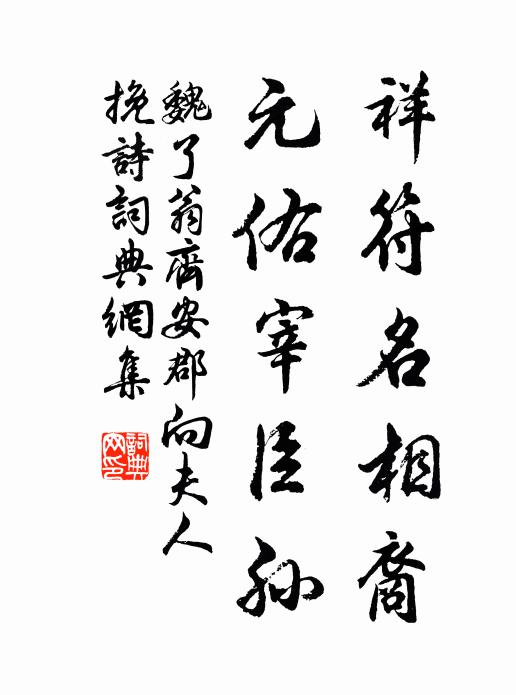 祥符名相裔
元佑宰臣孙
魏了翁齊安郡向夫人
挽詩詞典網集
詞典网印